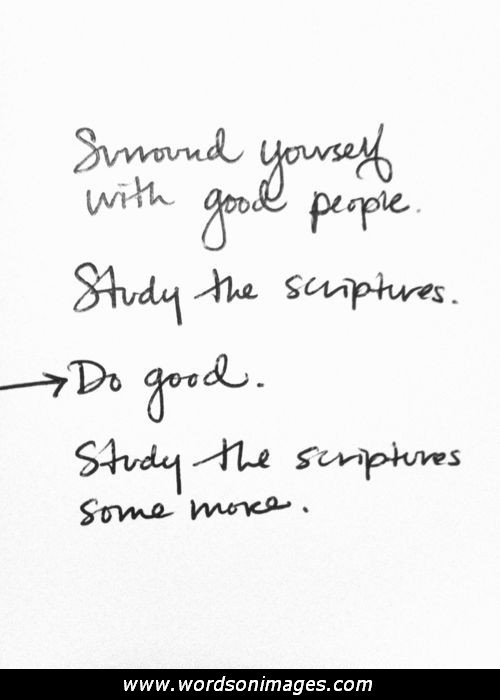 Surround yourself
with good people.
Study the scriptures.
Do good.
Study the scriptures
some more.
www.wordsonimages.com